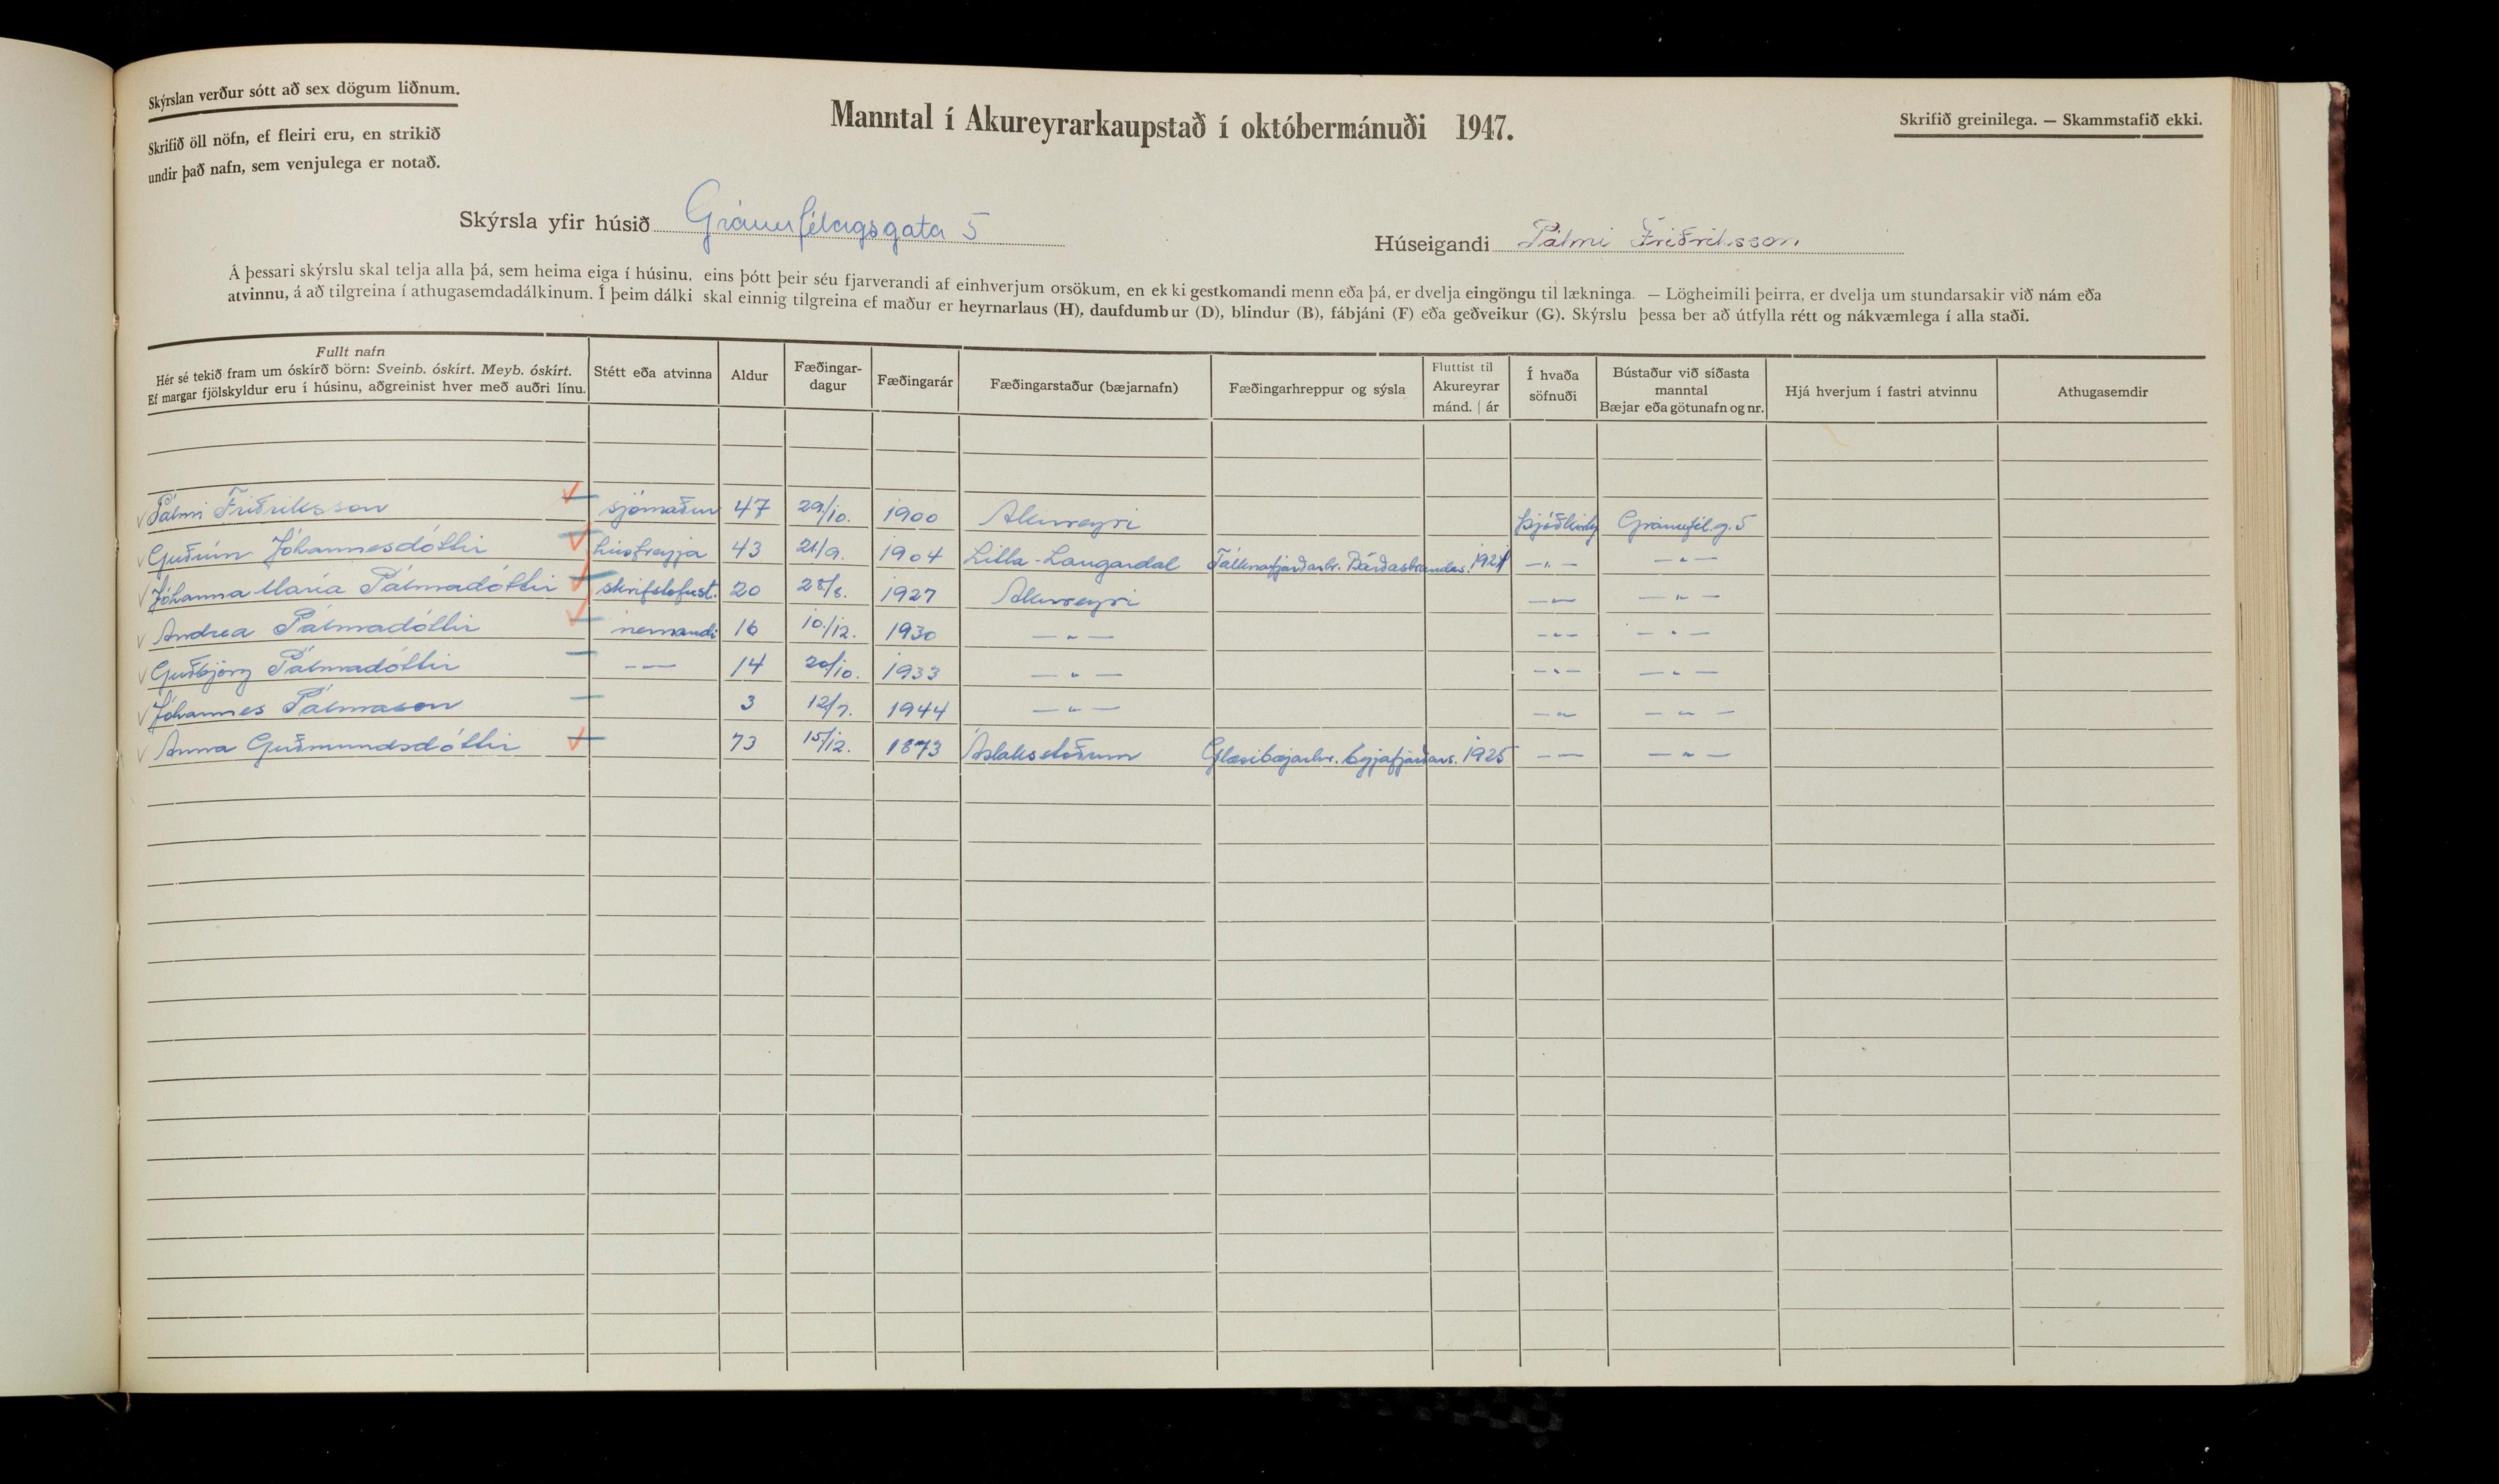 Skýrslan verður sótt að sex dögum liðnum.
Skrifið öll nöfn, ef fleiri eru, en strikið
undir það nafn, sem venjulega er notað.
Manntal í Akureyrarkaupstað í októbermánuði 1947.
Skrifið greinilega. — Skammstafið ekki.
Skýrsla yfir húsið Gránufélagsgata 5
Húseigandi Pálmi Friðriksson
Á þessari skýrslu skal telja alla þá, sem heima eiga í húsinu, eins þótt þeir séu fjarverandi af einhverjum orsökum, en ekki gestkomandi menn eða þá, er dvelja eingöngu til lækninga. — Lögheimili þeirra, er dvelja um stundarsakir við nám eða
atvinnu, á að tilgreina í athugasemdadálkinum. Í þeim dálki skal einnig tilgreina ef maður er heyrnarlaus (H), daufdumbur (D), blindur (B), fábjáni (F) eða geðveikur (G). Skýrslu þessa ber að útfylla rétt og nákvæmlega í alla staði.
Fullt nafn
Hér sé tekið fram um óskírð börn: Sveinb. óskírt. Meyb. óskírt.
Ef margar fjölskyldur eru í húsinu, aðgreinist hver með auðri línu.
Stétt eða atvinna
Aldur
Fæðingar-
dagur
Fæðingarár
Fæðingarstaður (bæjarnafn)
Fæðingarhreppur og sýsla
Fluttist til
Akureyrar
mánd. | ár
Í hvaða
söfnuði
Bústaður við síðasta
manntal
Bæjar eða götunafn og nr.
Hjá hverjum í fastri atvinnu
Athugasemdir
Pálmi Friðriksson sjómaður 47 29/10. 1900 Akureyri Þjóðkirkj Gránufél.g. 5
Guðrún Jóhannesdóttir húsfreyja 43 21/9. 1904 Litla-Laugardal Tálknafjarðarhr. Barðastrandas. 1921 —"— —"—
Jóhanna María Pálmadóttir skrifstofust. 20 28/8. 1927 Akureyri —"— —"—
Andrea Pálmadóttir nemandi 16 10./12. 1930 —"— —"— —"—
Guðbjörg Pálmadóttir —"— 14 20/10. 1933 —"— —"— —"—
Jóhannes Pálmason 3 12/7. 1944 —"— —"— —"—
Anna Guðmundsdóttir 73 15/12. 1873 Áslaksstöðum Glæsibæjarhr. Eyjafjarðars. 1925 —"— —"—